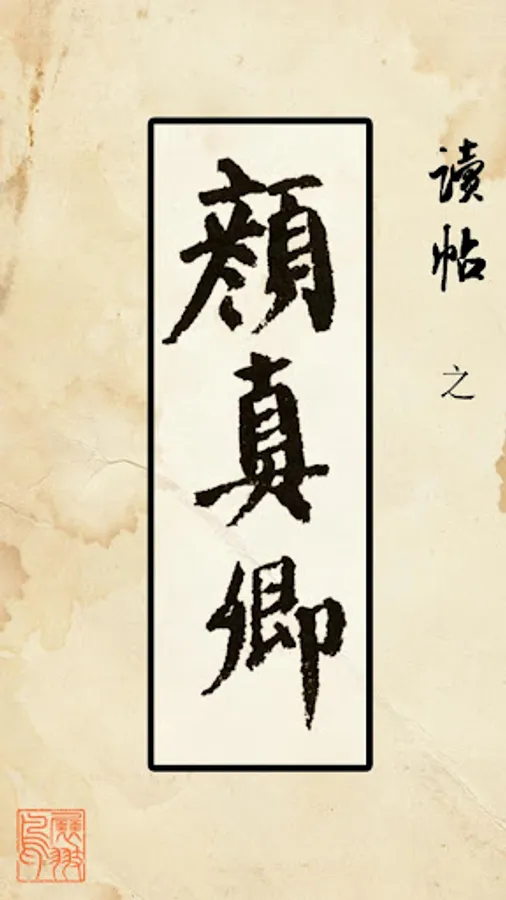 读帖
之
顏真卿